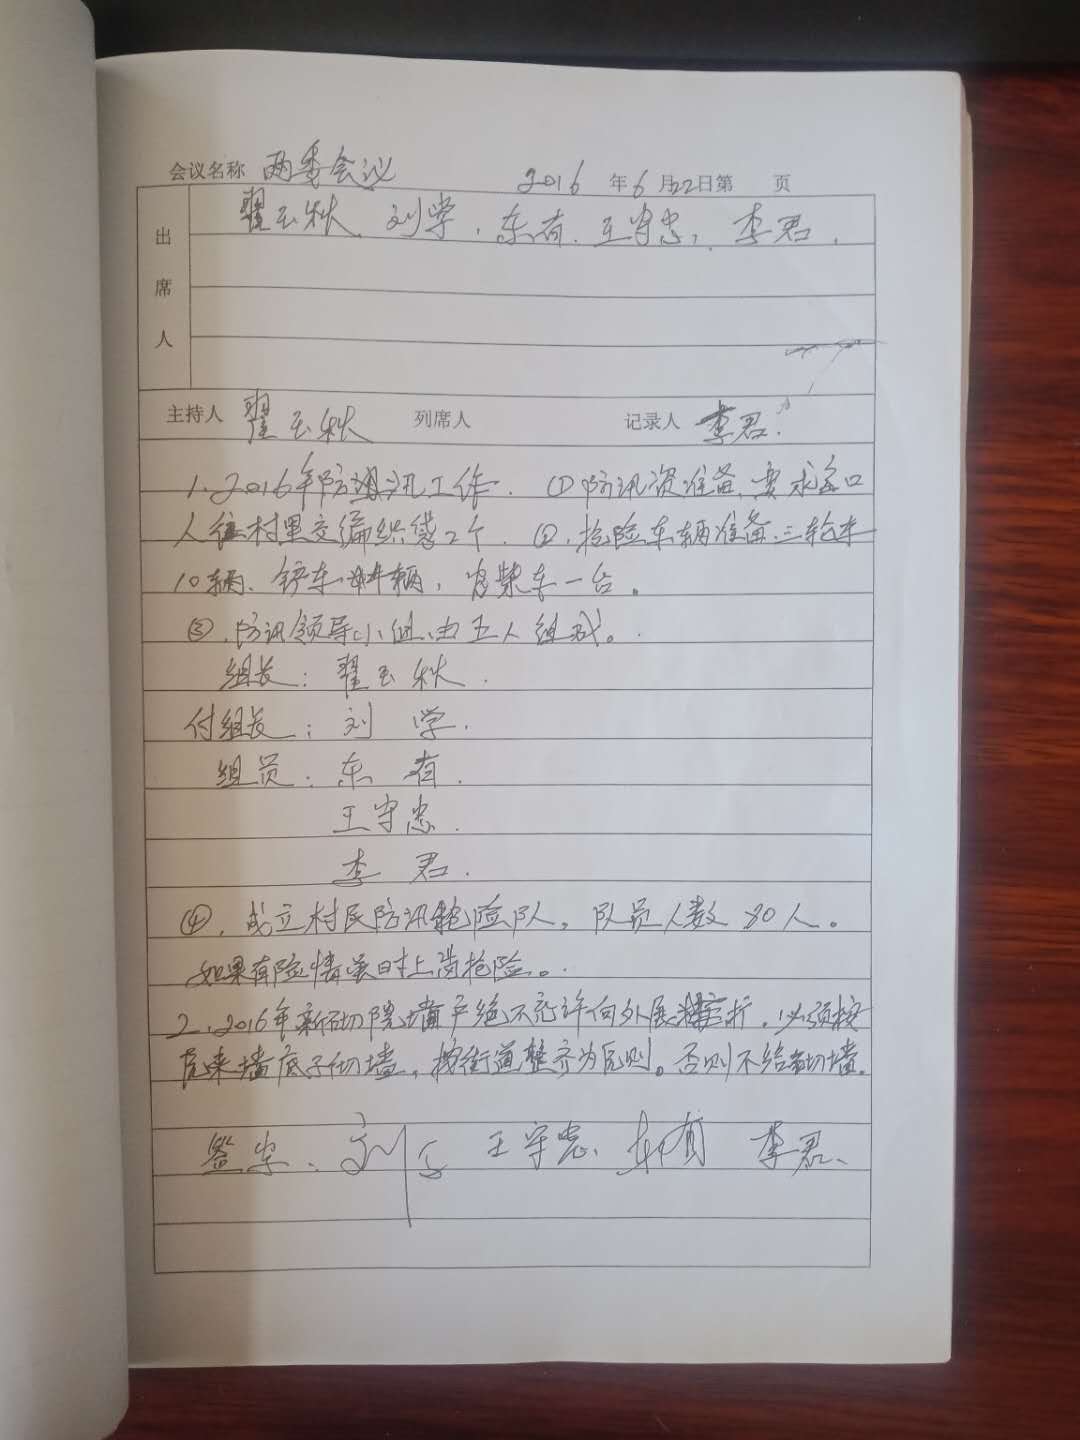 会议名称 两委会议 2016 年 6 月 22 日第 页
出席人 翟玉秋、刘学、东有、王守忠、李君、
主持人 翟玉秋 列席人 记录人 李君.
1、2016年防汛工作. ①防汛资准备、要求每口
人往村里交编织袋2个. ②、抢险车辆准备、三轮车
10辆、铲车 辆, 车一台。
③、防汛领导小组、由五人组成。
组长: 翟玉秋.
付组长: 刘 学.
组员: 东 有.
王守忠.
李 君.
④、成立村民防汛抢险队, 队员人数 80人。
如果有险情 时上岗抢险。
2、2016年新砌院墙户绝不允许向外展 , 必须按
原来墙底子砌墙, 按街道整齐为原则。否则不给砌墙。
签字: 刘学 王守忠、东有 李君、